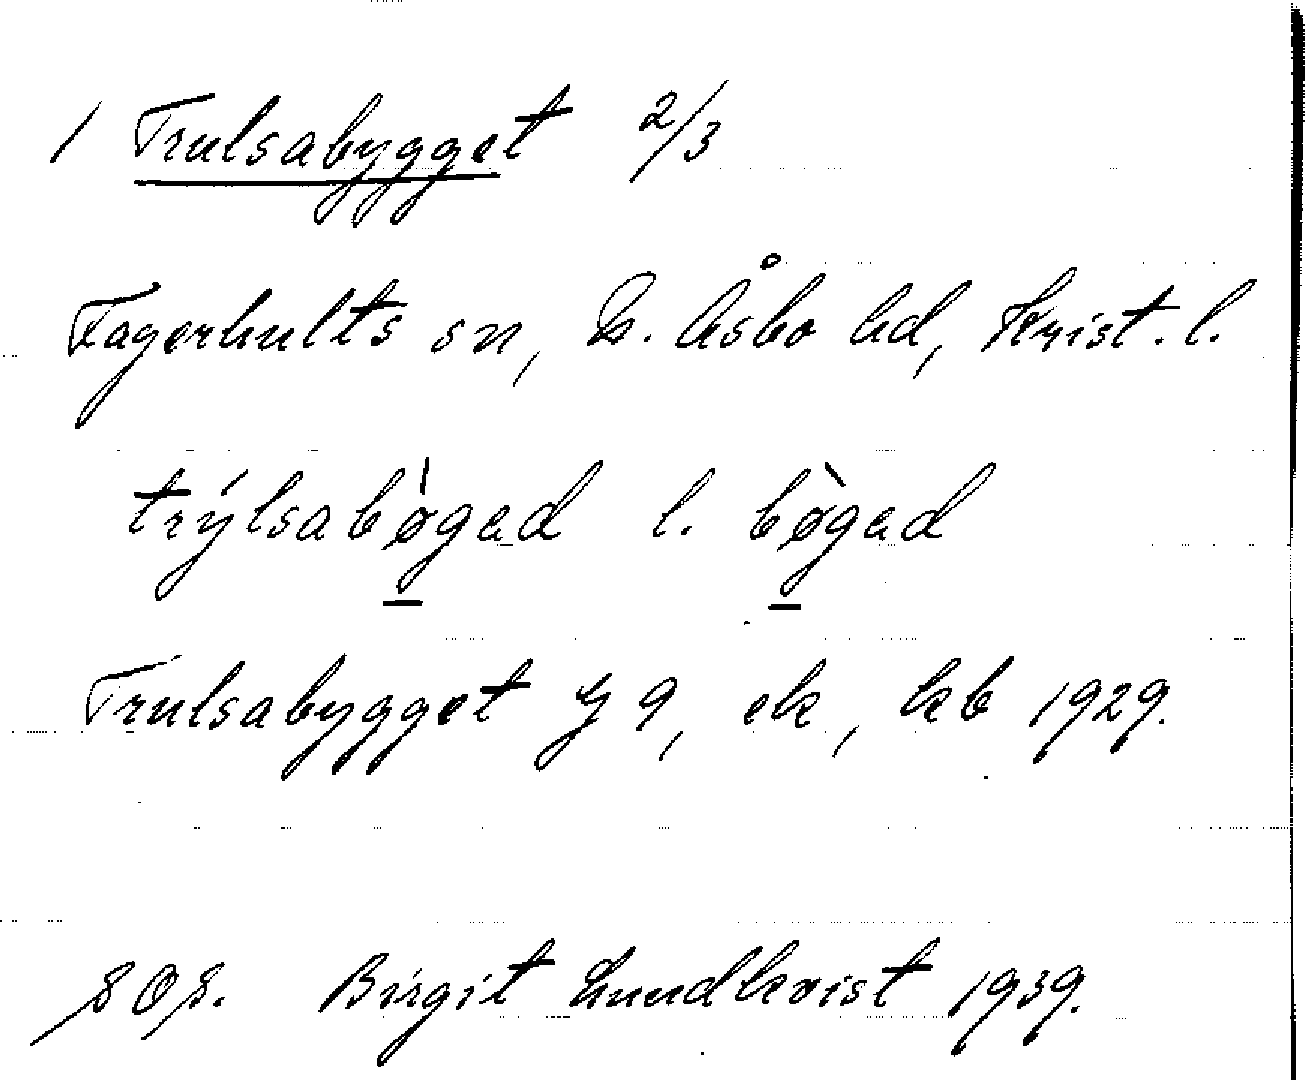 1 Trulsabygget 2/3
Fagerhults sn, N. Åsbo hd, Krist. l.
trýlsabø̀gad l. bø̀gad
Trulsabygget 9, ek, kb 1929.
SOS. Birgit Lundkvist 1939.